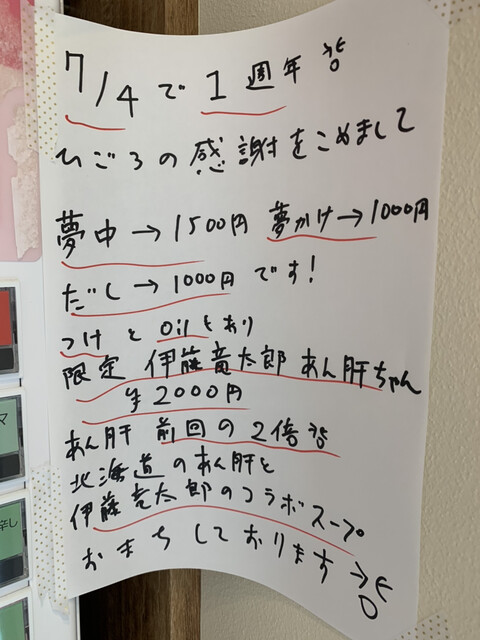 7/4で1週年
ひごろの感謝をこめまして
夢中→1500円 夢かけ→1000円
だし→1000円です!
つけとOilもあり
限定 伊藤竜太郎 あん肝ちゃん
¥2000円
あん肝 前回の2倍
北海道のあん肝と
伊藤竜太郎のコラボスープ
おまちしております
マ
辛し